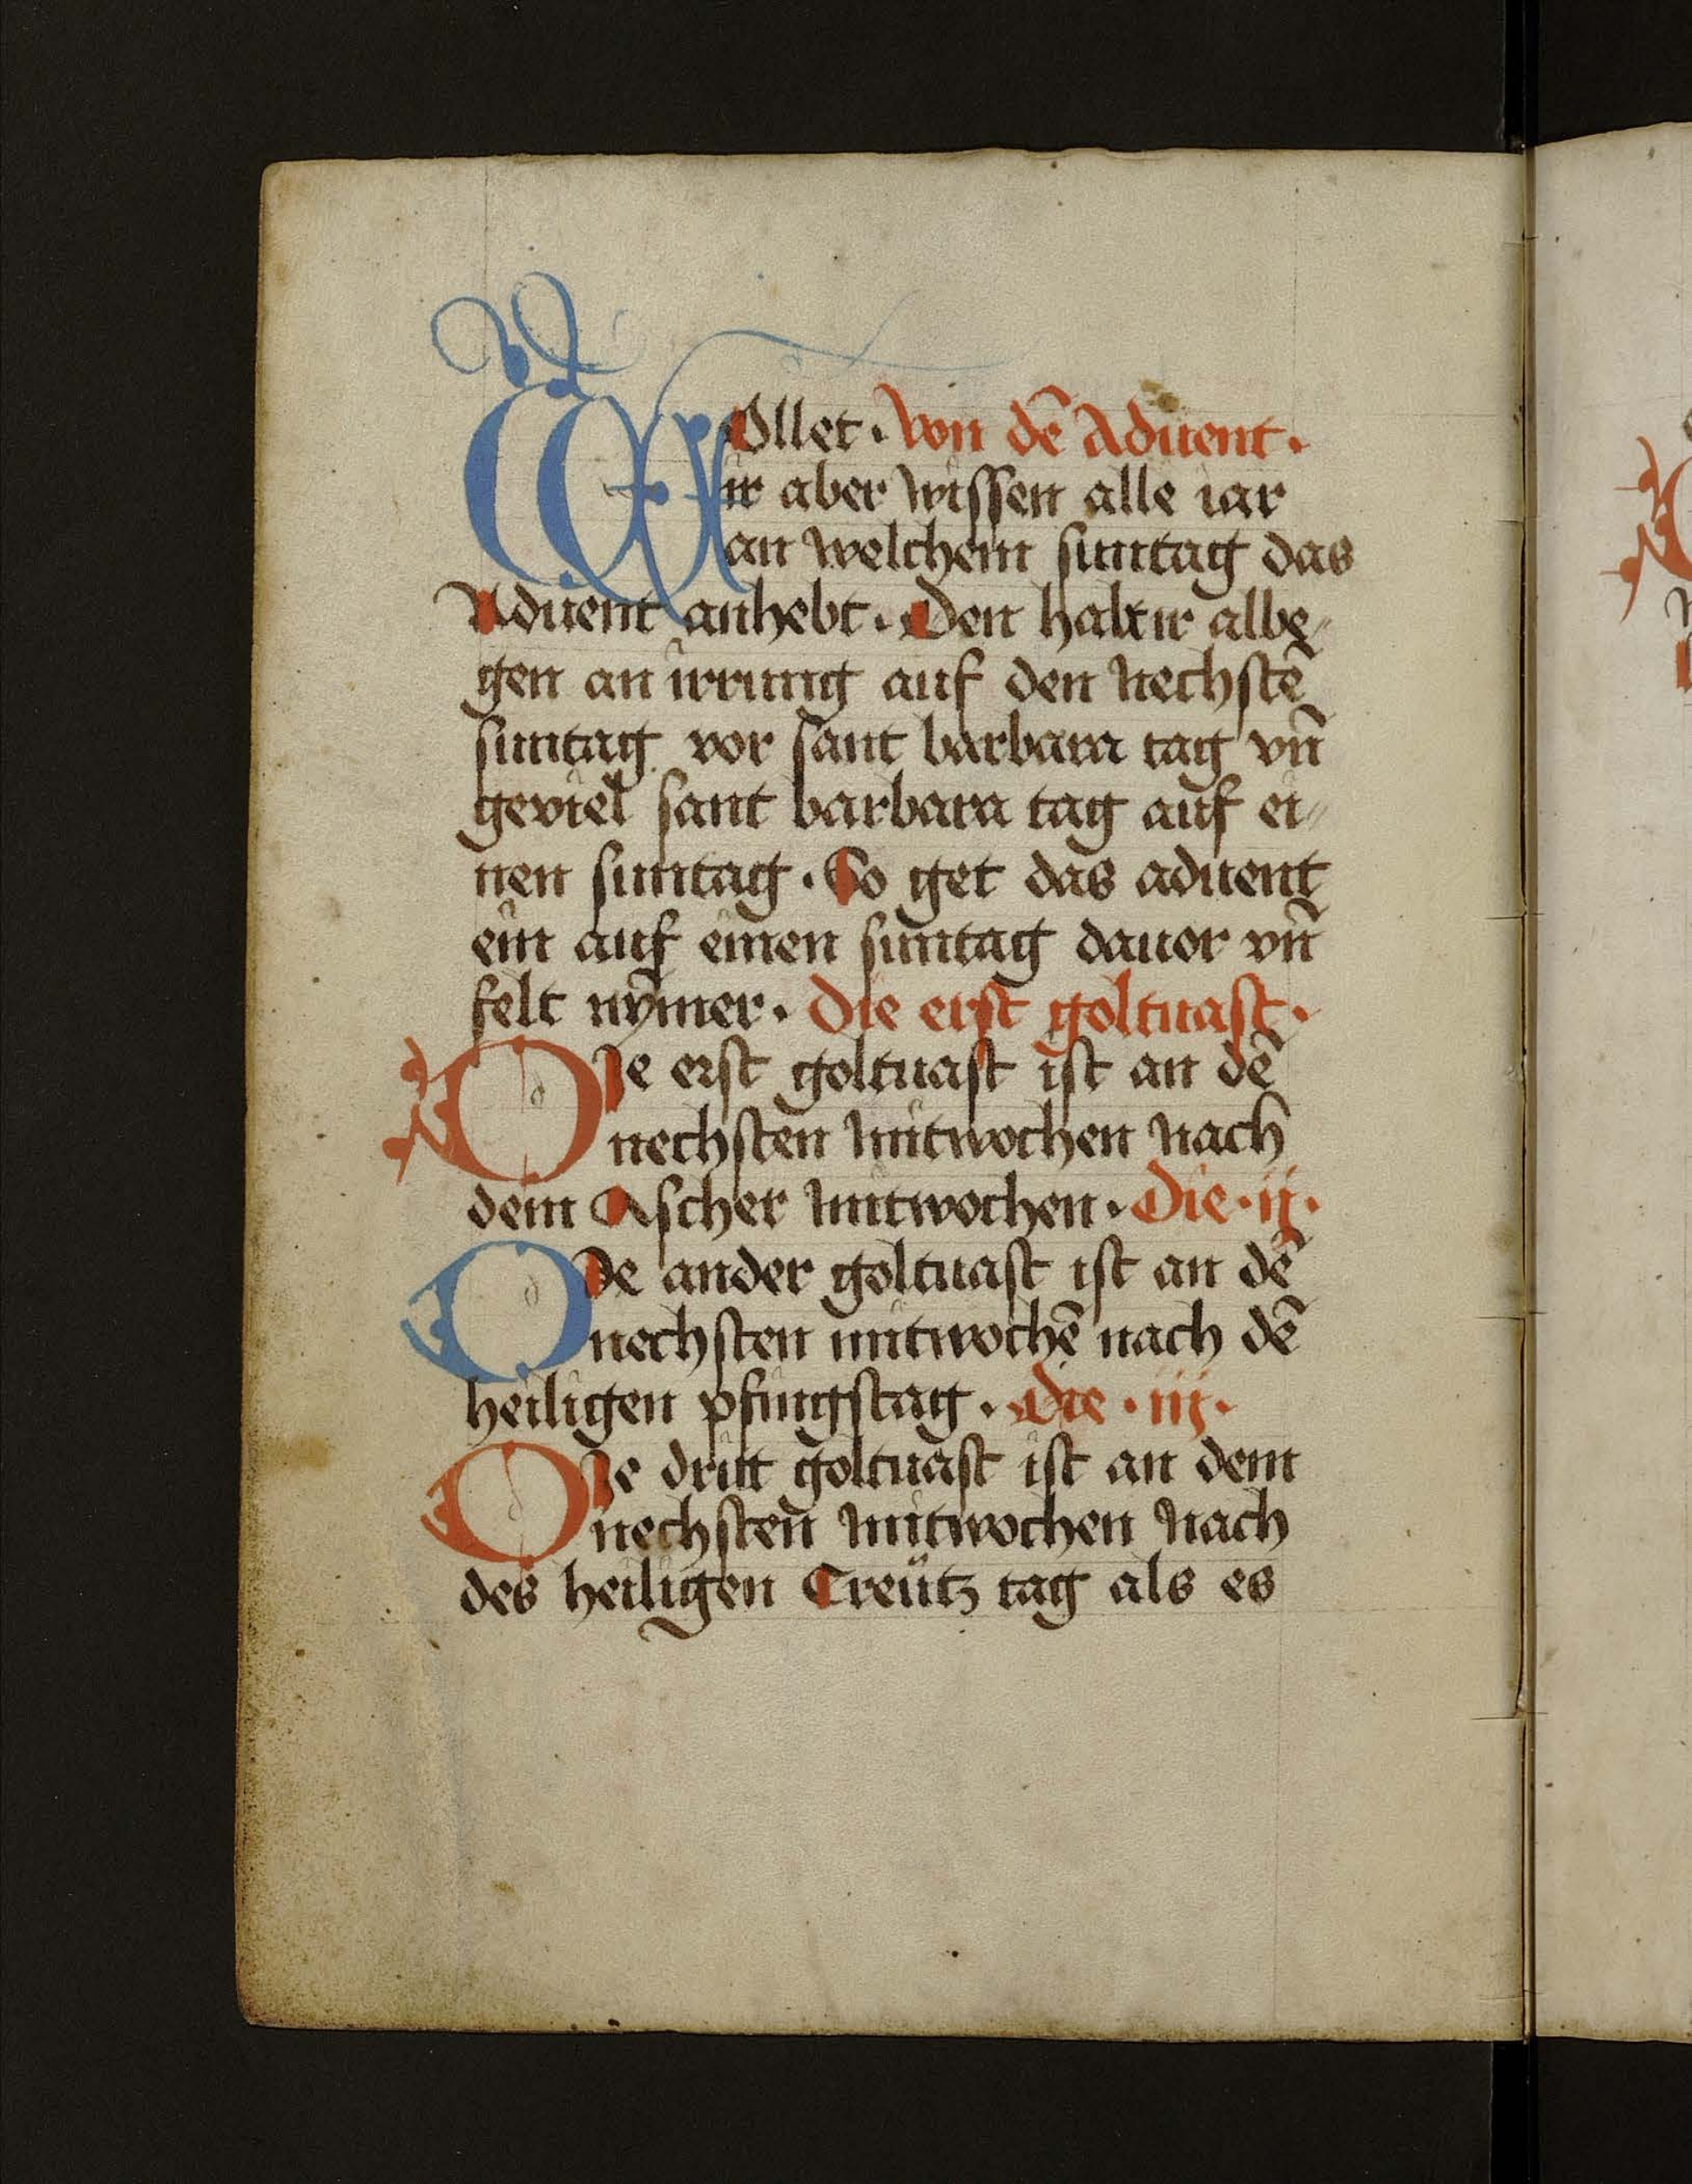 WOllet · Von dē Aduent ·
ir aber wissen alle iar
an welchem suntag das
Aduent anhebt · Den halt ir albe
gen an irrung auf den nechstē
suntag vor sant barbara tag vn̄
geviel sant barbara tag auf ei
nen suntag · So get das aduent
ein auf einen suntag dauor vn̄
felt nȳmer · Die erst goltuast ·
DIe erst goltuast ist an dē
nechsten mitwochen nach
dem Ascher mitwochen · Die · ij ·
DDe ander goltuast ist an dē
nechsten mitwochē nach dē
heiligen pfingstag · Die · iij ·
DIe dritt goltuast ist an dem
nechsten mitwochen nach
des heiligen Creütz tag als es